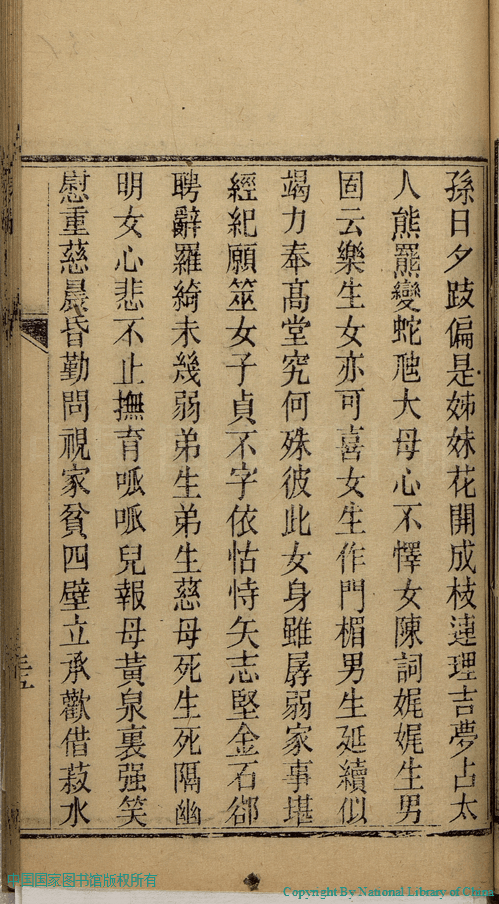 孫日夕跂偏是姊妹花開成枝連理吉夢占太
人熊羆變蛇虺大母心不懌女陳詞娓娓生男
固云樂生女亦可喜女生作門楣男生延續似
竭力奉高堂究何殊彼此女身雖孱弱家事堪
經紀願筮女子貞不字依怙恃矢志堅金石郤
聘辭羅綺未幾弱弟生弟生慈母死生死隔幽
明女心悲不止撫育呱呱兒報母黃泉裏强笑
慰重慈晨昏勤問視家貧四壁立承歡借菽水
中国国家图书馆版权所有
Copyright By National Library of China